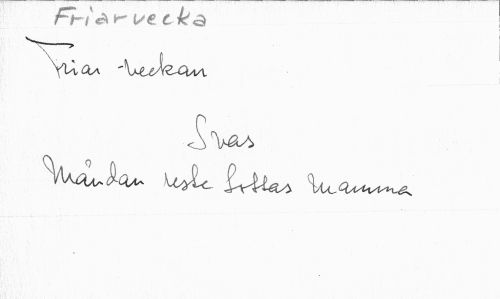 Friarvecka
Friar-veckan
Svas
Måndan reste Lottas Mamma